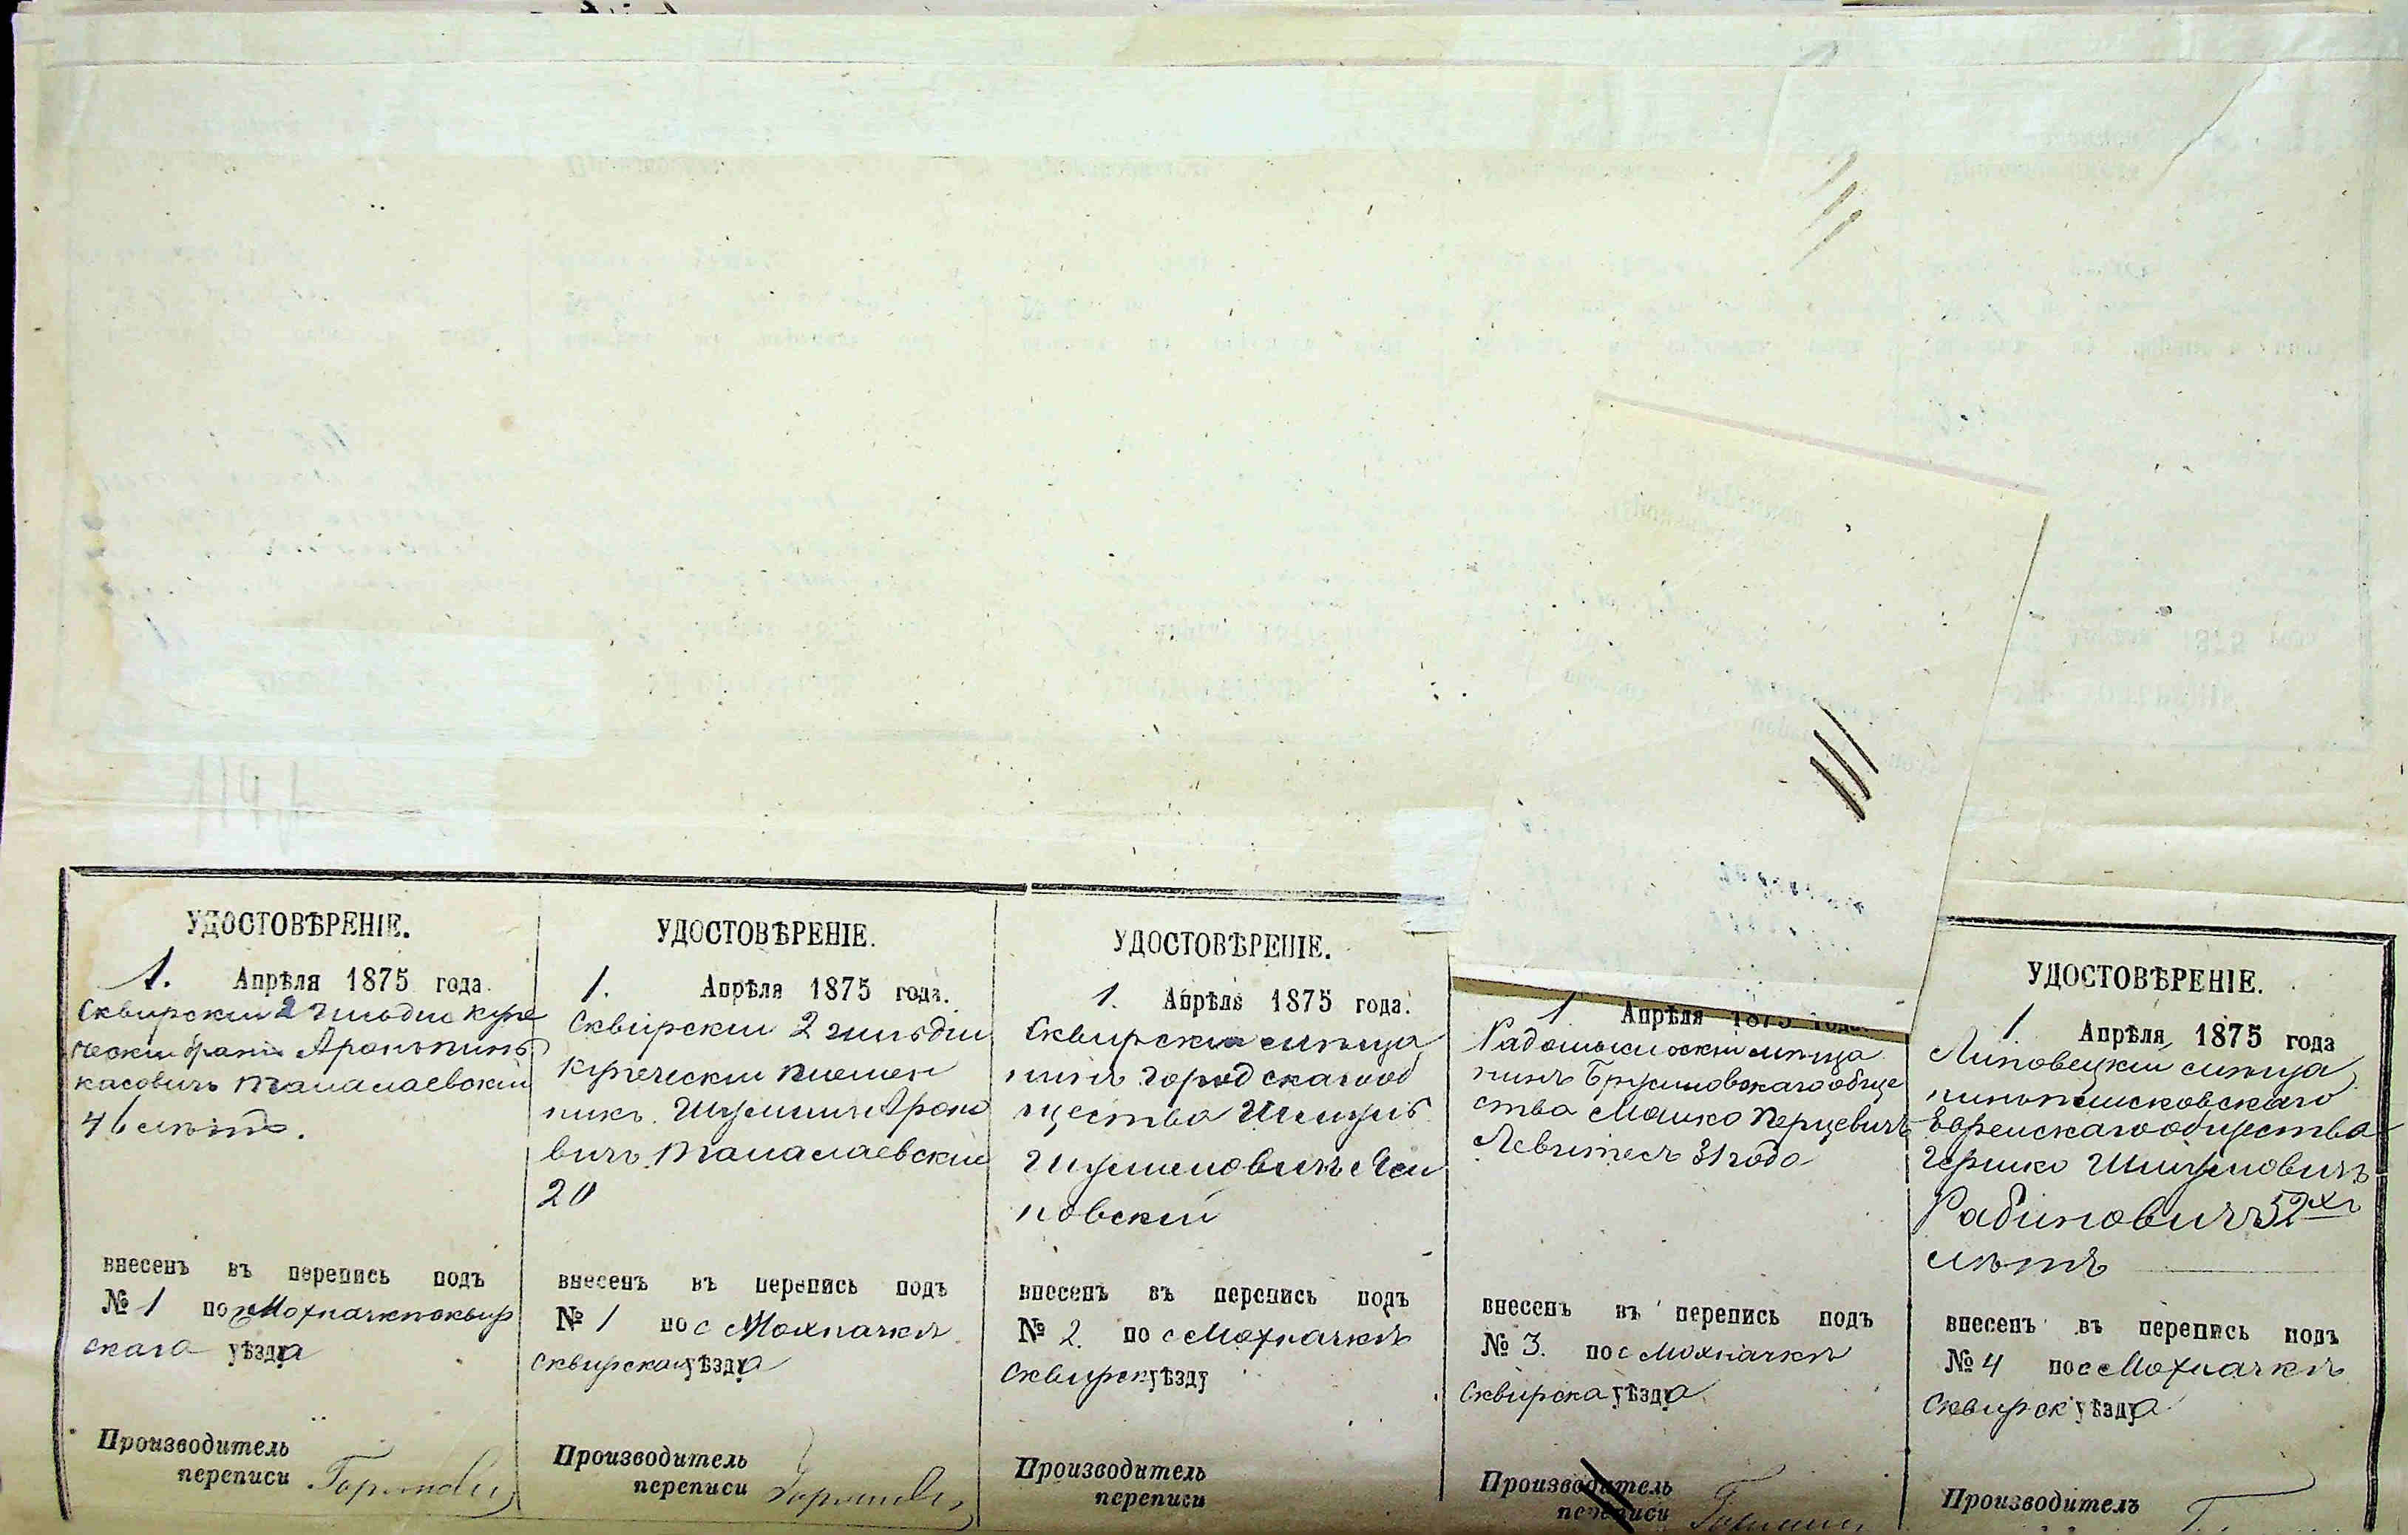 УДОСТОВѢРЕНІЕ.
1. Апрѣля 1875 года.
Сквирскій 2 гильдіи купе
ческій братъ Аронъ Пин
касовичъ Талалаевскій
46 лѣтъ.
внесенъ въ перепись подъ
№ 1 по с Мохначкѣ Сквир
скаго уѣзда
Производитель
переписи
УДОСТОВѢРЕНІЕ.
1. Апрѣля 1875 года.
Сквирскій 2 гильдіи
купеческій племен
никъ ШулимъАроно
вичъ Талалаевскій
20
внесенъ въ перепись подъ
№ 1 по с Мохначкѣ
Сквирскаго уѣзда
Производитель
переписи
УДОСТОВѢРЕНІЕ.
1. Апрѣля 1875 года.
Сквирскій мѣща
нинъ городскаго об
щества
Шулимовичъ
новскій
внесенъ въ перепись подъ
№ 2. по с Мохначкѣ
Сквирск уѣзду
Производитель
переписи
1 Апрѣля 1875 года.
Радомысльскій мѣща
нинъ Брусиловскаго обще
ства Мошко Перцевичъ
Левитесъ 31 года
внесенъ въ перепись подъ
№ 3. по с Мохначкѣ
Сквирска уѣзда
Производитель
переписи
УДОСТОВѢРЕНІЕ.
1 Апрѣля 1875 года
Липовецкій мѣща
нинъ
Еврейскаго общества
Гершко Шмулювичъ
Рабиновичъ 52хъ
лѣтъ
внесенъ въ перепись подъ
№ 4 по с Мохначкѣ
Сквирск уѣзда
Производитель